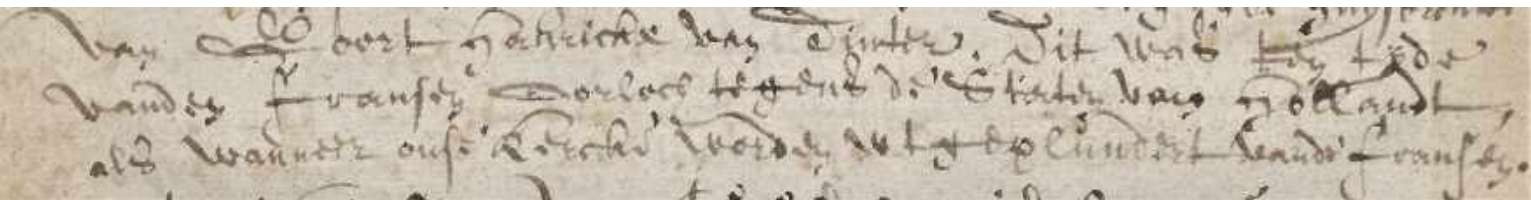 van Goort Hanricke van Dinter. Dit was ten tyde
vanden fransen Oorloch tegens de Staten van Hollandt,
als wanneer onse Kercke worden wtgeplundert vande fransen.